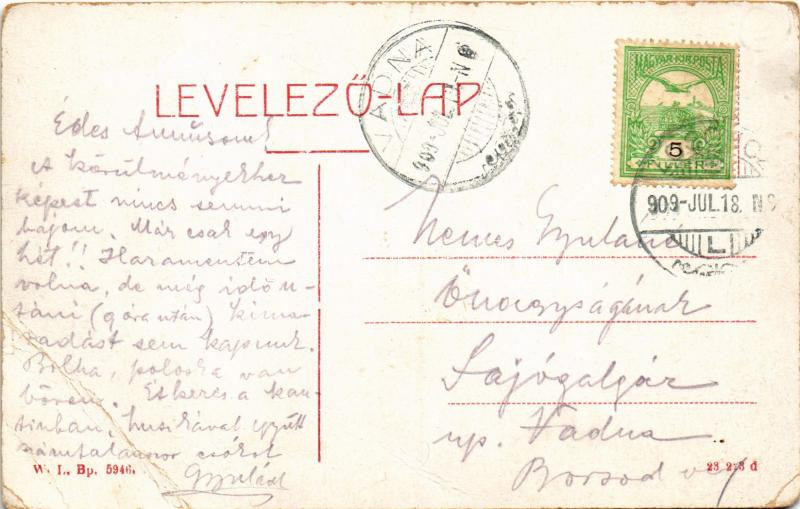 LEVELEZŐ-LAP
VADNA
909-JUL.
MAGYAR·KIR·POSTA
5
909-JUL.18. N
Édes
A körülményekhez
képest nincs semmi
bajom. Már csak egy
hét!! Haramentem
volna, de még idő u-
táni (9 óra után) kima-
radást sem kapunk.
Bolha, poloska van
bőven. Étkezés a kan-
tinban,
számtalanszor csókol
Gyulád
Nemes Gyuláné
Őnagyságának
Sajógalgóc
up. Vadna
Borsod
W. L. Bp. 5946.